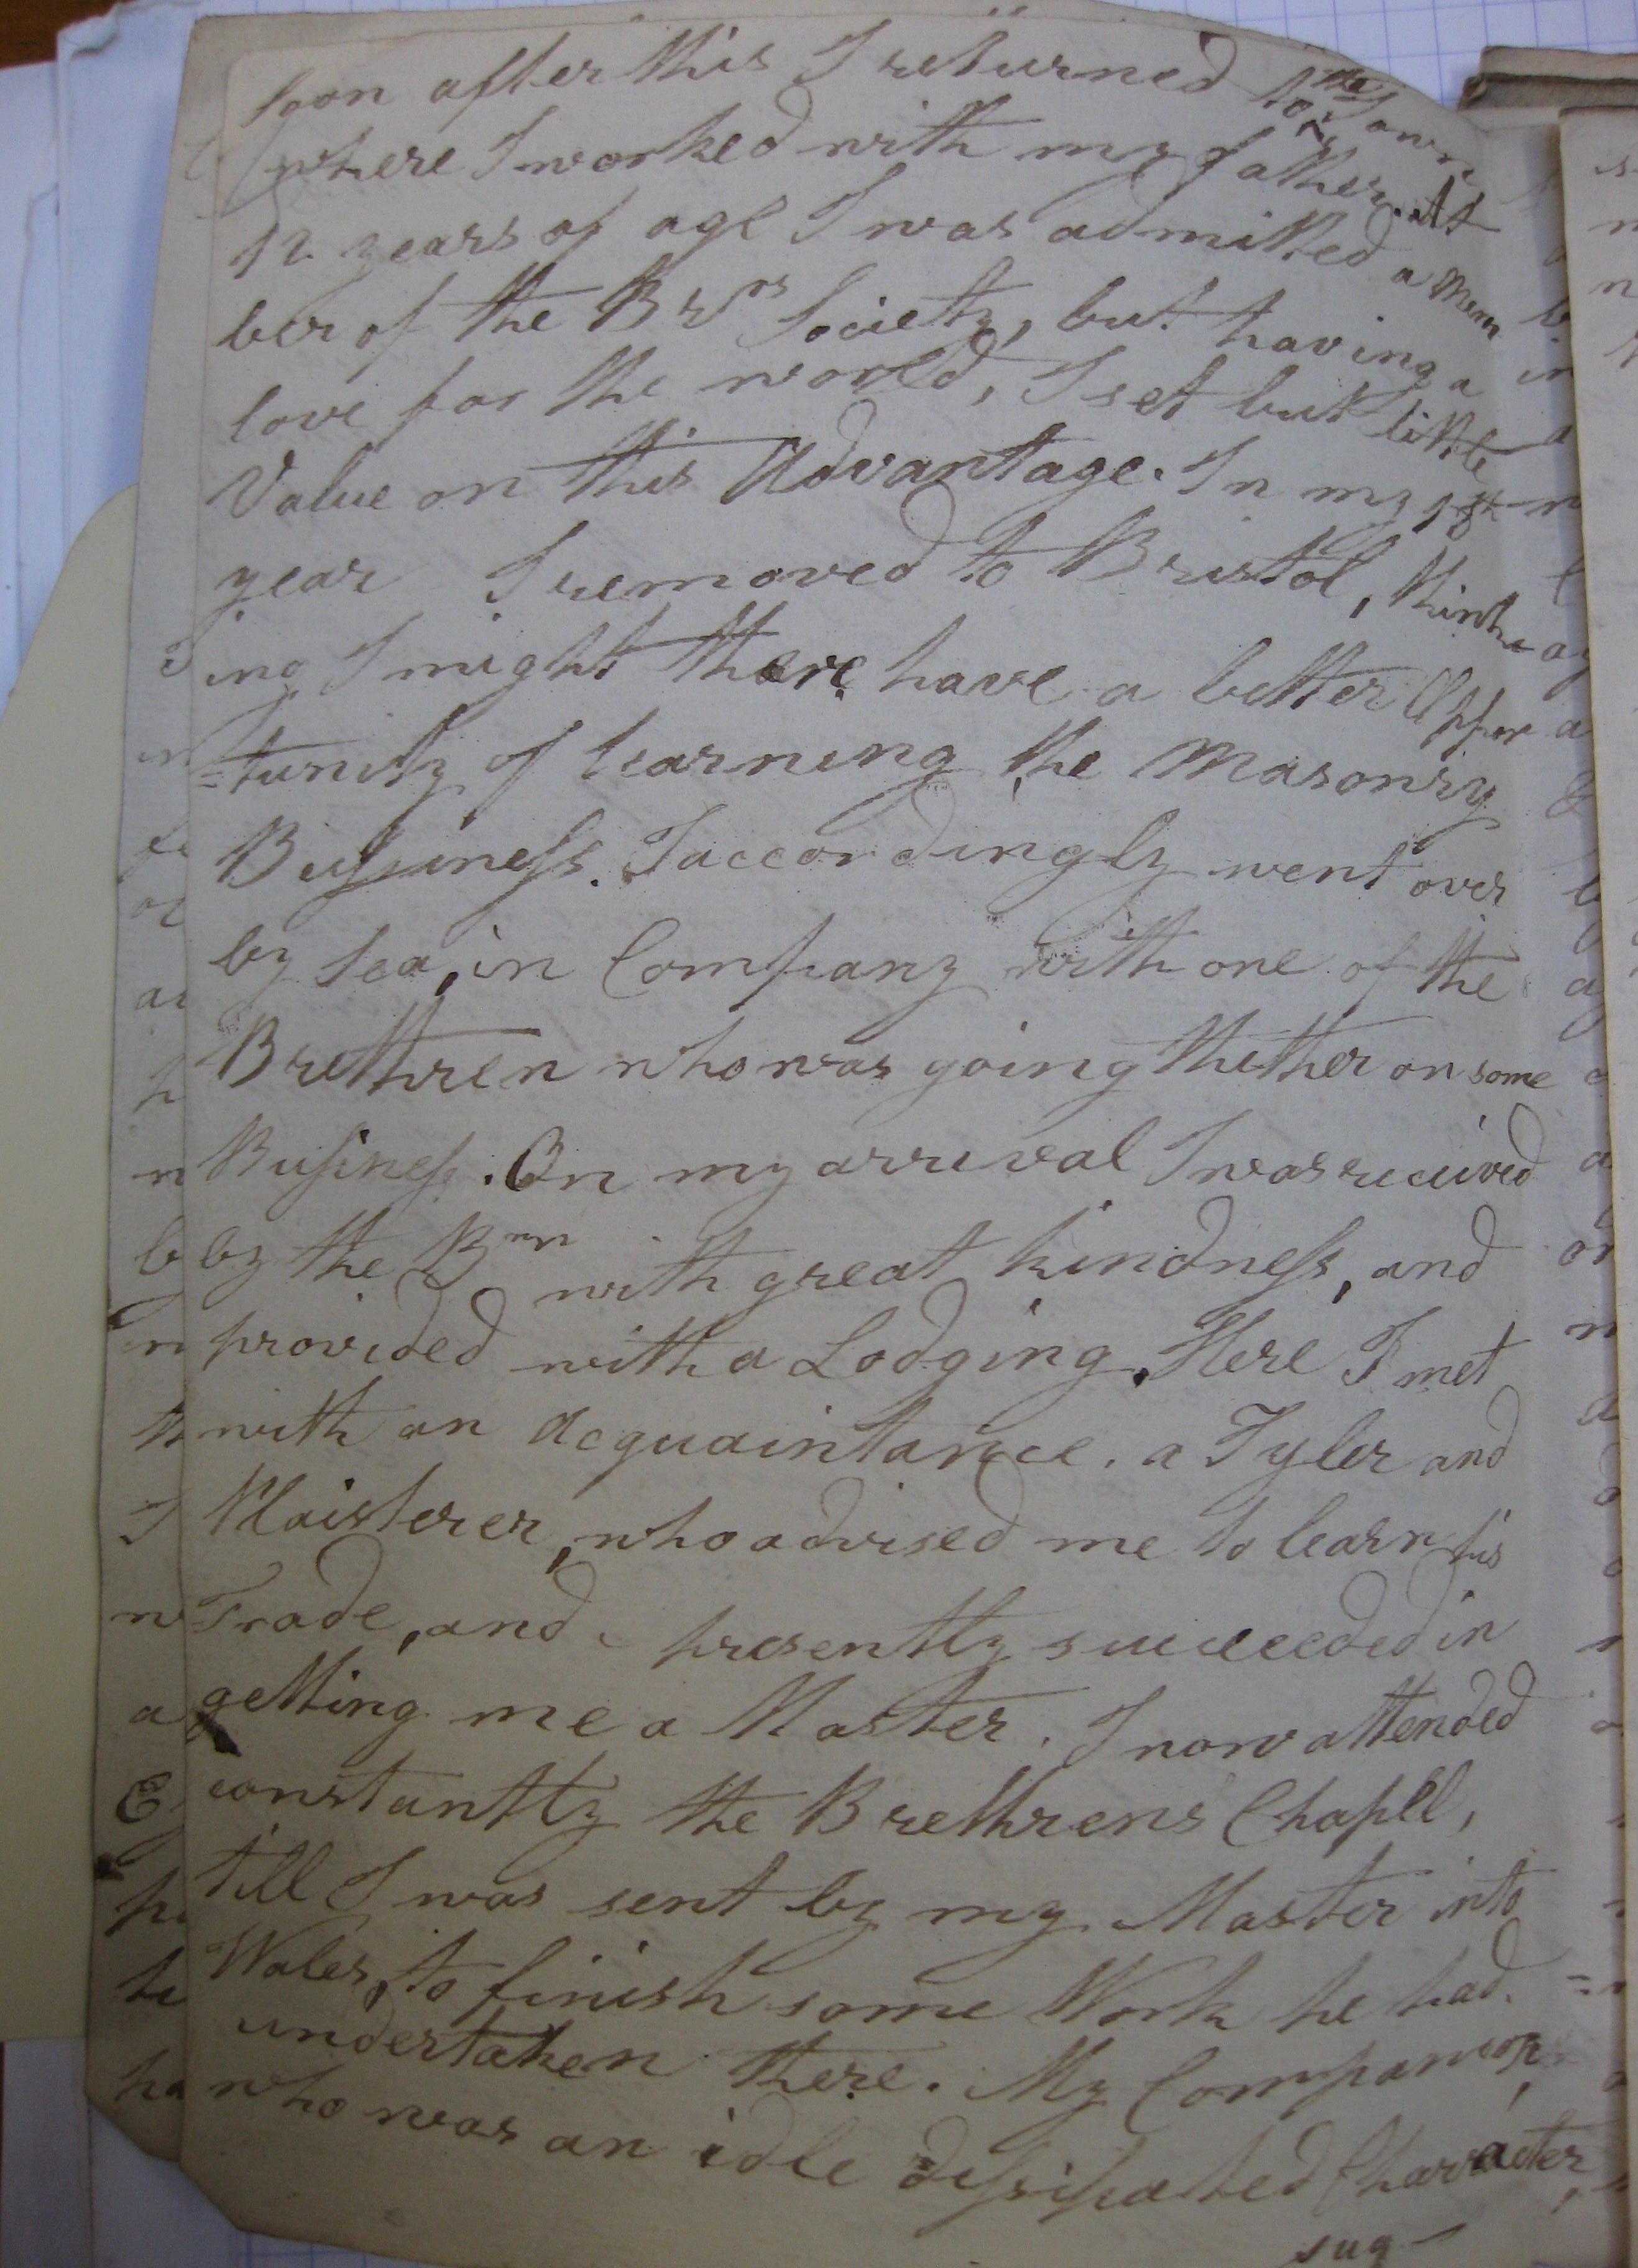 soon after this I returned to my Town
where I worked with my father. at
12 years of age I was admitted a Mem
ber of the Brns Society, but having a
love for the world, I set but little
Value on this Advantage. In my 18th
year I removed to Bristol, think
ing I might there have a better Oppor
=tunity of learning the Masonry
Bussiness. I accordingly went over
by Sea, in Company with one of the
Brethren who was going thither on some
Business. On my arrival I was received
by the Brn with great kindness, and
provided with a Lodging. Here I met
with an Acquaintance, a Tyler and
Plaisterer, who advised me to learn his
Trade, and presently succeeded in
getting me a Master. I now attended
constantly the Brethrens Chapel,
till I was sent by my Master into
Wales, to finish some Work he had
undertaken there. My Companion,
who was an idle dissipated Character,
sug-